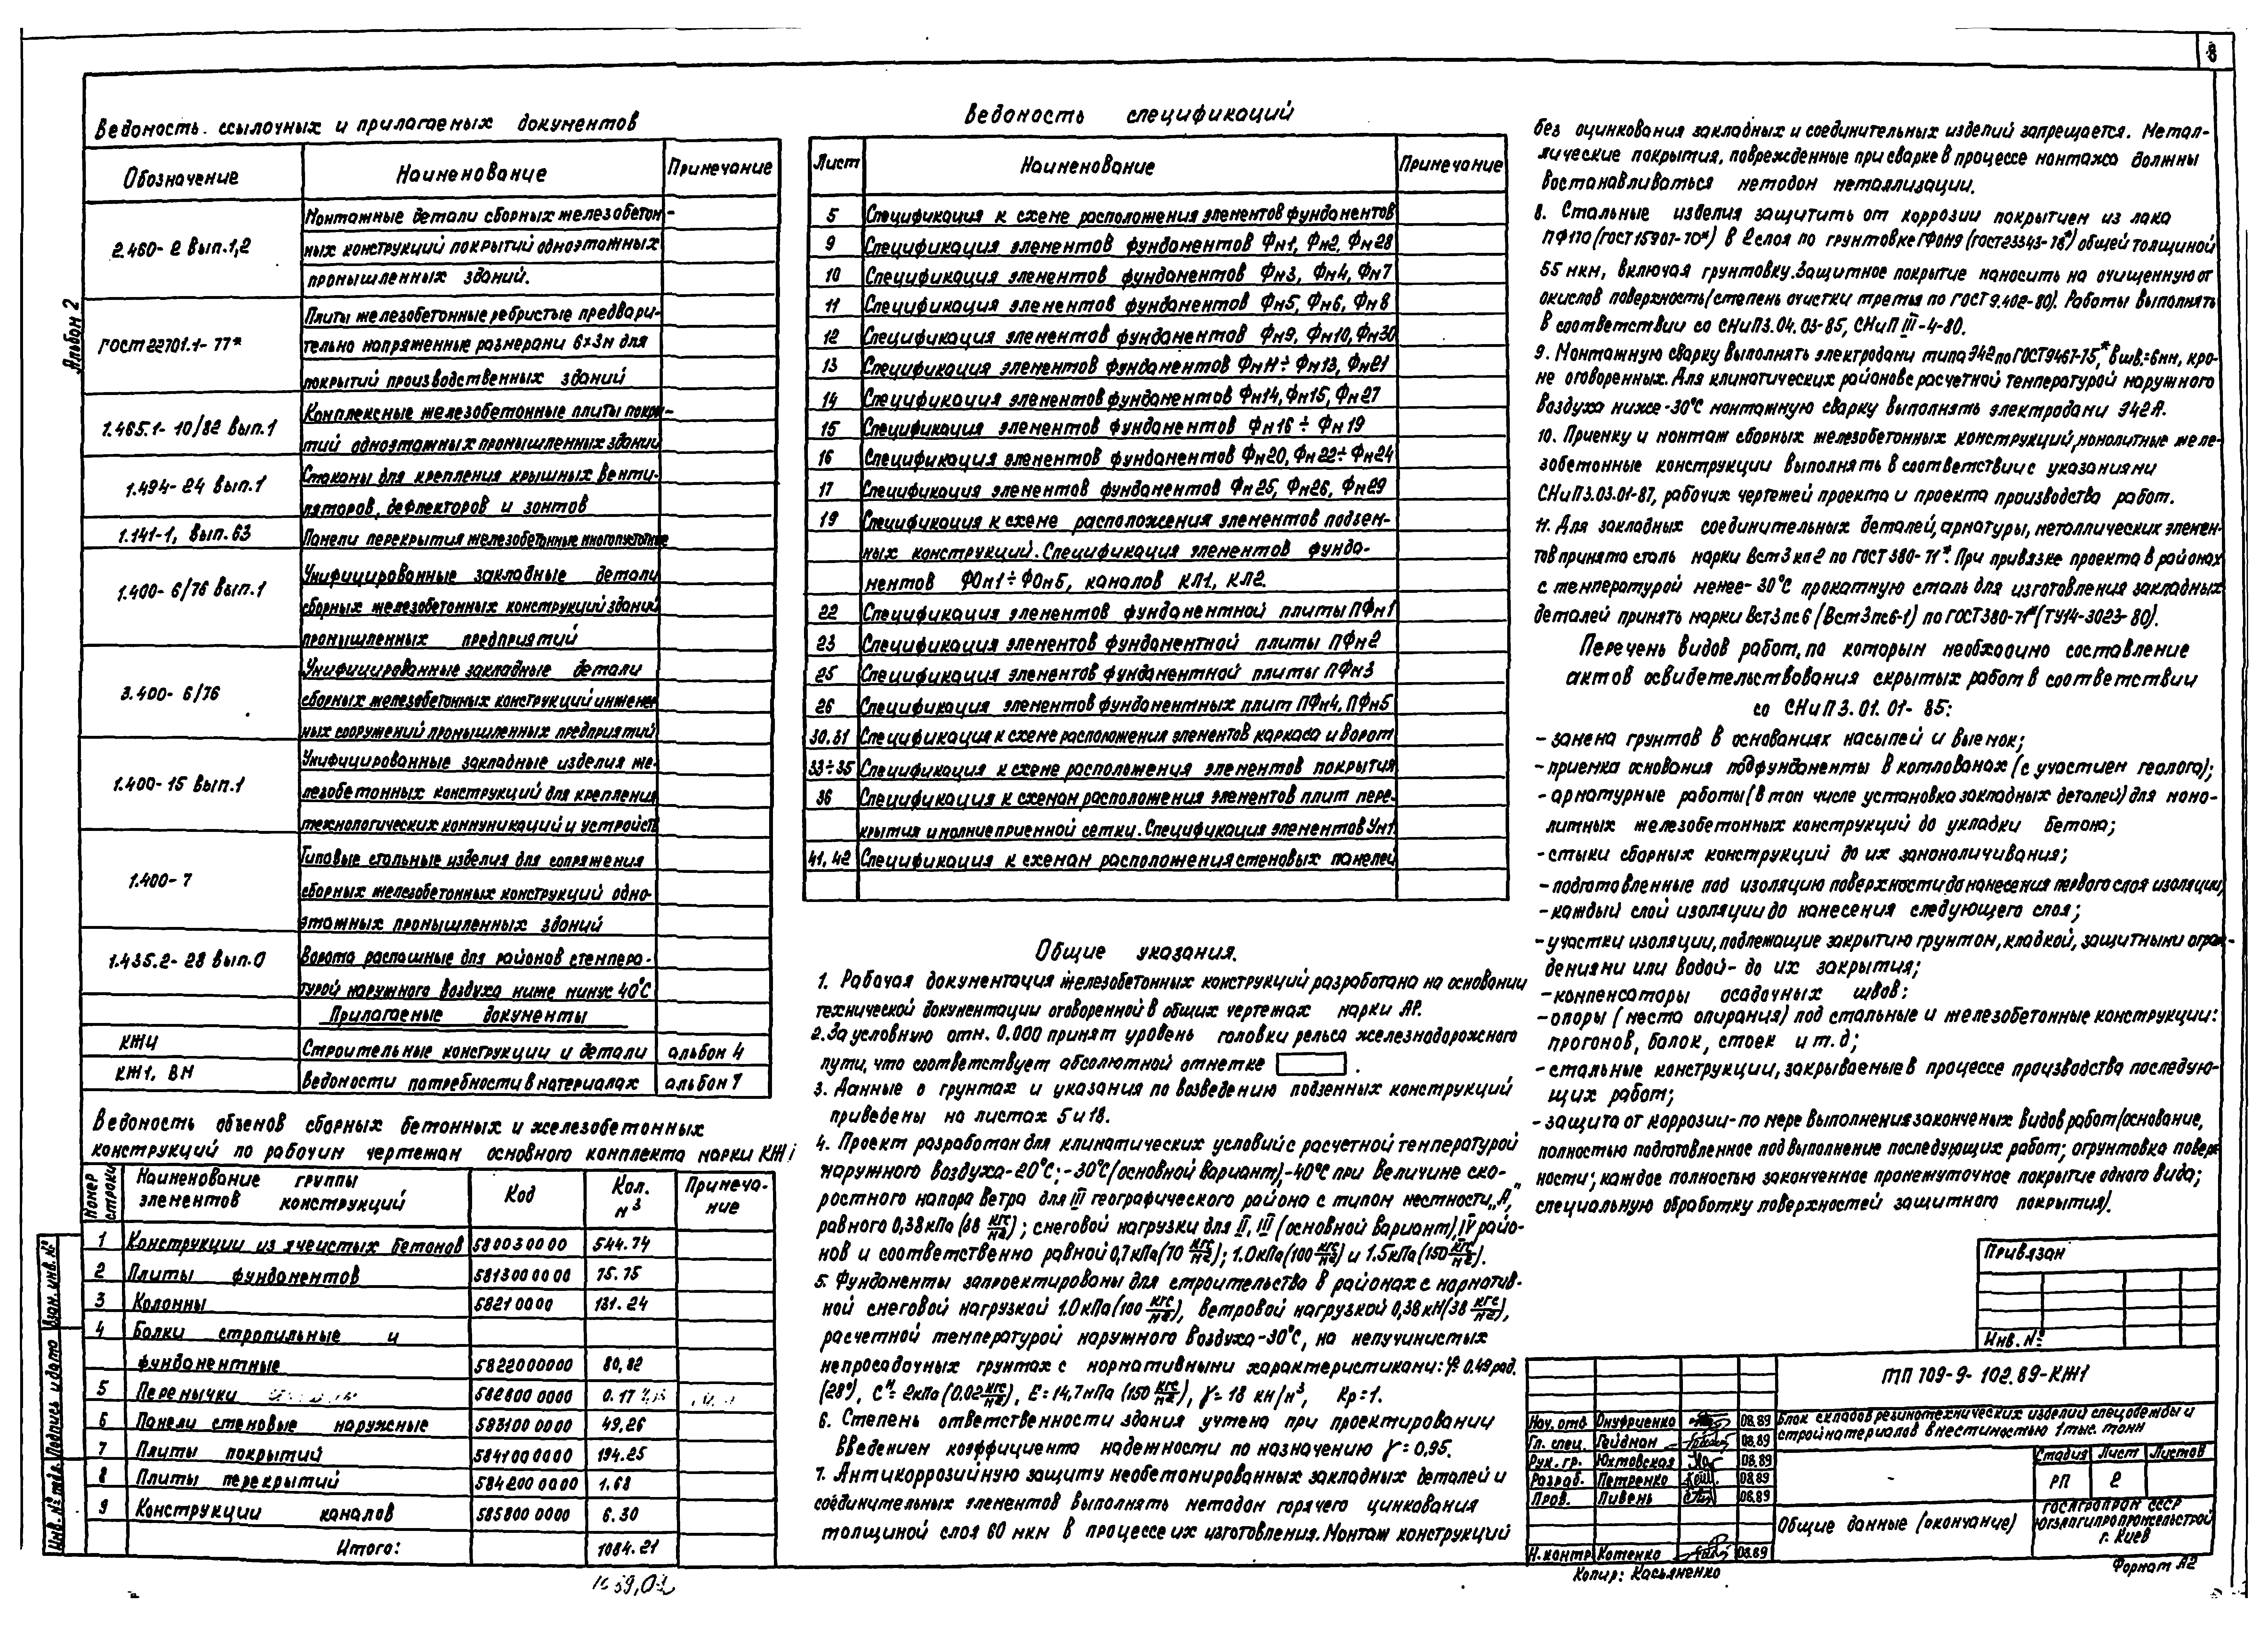 8
Альбом 2
Ведомость ссылочных и прилагаемых документов
Обозначение Наименование Примечание
2.460-2 вып.1,2 Монтажные детали сборных железобетон-
ных конструкций покрытий одноэтажных
промышленных зданий.
ГОСТ 22701.1-77* Плиты железобетонные ребристые предвари-
тельно напряженные размерами 6×3м для
покрытий производственных зданий
1.465.1-10/82 вып.1 Комплексные железобетонные плиты покры-
тий одноэтажных промышленных зданий
1.494-24 вып.1 Стаканы для крепления крышных венти-
ляторов, дефлекторов и зонтов
1.141-1, вып.63 Панели перекрытия железобетонные многопустотные
1.400-6/76 вып.1 Унифицированные закладные детали
сборных железобетонных конструкций зданий
промышленных предприятий
3.400-6/76 Унифицированные закладные детали
сборных железобетонных конструкций инженер
ных сооружений промышленных предприятий
1.400-15 вып.1 Унифицированные закладные изделия же-
лезобетонных конструкций для крепления
технологических коммуникаций и устройств
1.400-7 Типовые стальные изделия для сопряжения
сборных железобетонных конструкций одно-
этажных промышленных зданий
1.435.2-28 вып.0 Ворота распашные для районов с темпера-
турой наружного воздуха ниже минус 40°С
Прилагаемые документы
КЖИ Строительные конструкции и детали альбом 4
КЖ1. ВМ Ведомости потребности в материалах альбом 7
Ведомость объемов сборных бетонных и железобетонных
конструкций по рабочим чертежам основного комплекта марки КЖ1
Номер строки Наименование группы элементов конструкций Код Кол. м³ Примеча-ние
1 Конструкции из ячеистых бетонов 580030000 544.74
2 Плиты фундаментов 5813000000 75.75
3 Колонны 58210000 131.24
4 Балки стропильные и
фундаментные 5822000000 80,82
5 Перемычки 582800 0000 0.17
6 Панели стеновые наружные 583100 0000 49,26
7 Плиты покрытий 584100 0000 194.25
8 Плиты перекрытий 584200 0000 1.68
9 Конструкции каналов 585800 0000 6.30
Итого: 1084.21
Взам. инв. №
Подпись и дата
Инв. № подл.
Ведомость спецификаций
Лист Наименование Примечание
5 Спецификация к схеме расположения элементов фундаментов
9 Спецификация элементов фундаментов Фм1, Фм2, Фм28
10 Спецификация элементов фундаментов Фм3, Фм4, Фм7
11 Спецификация элементов фундаментов Фм5, Фм6, Фм8
12 Спецификация элементов фундаментов Фм9, Фм10, Фм30
13 Спецификация элементов фундаментов Фм11÷Фм13, Фм21
14 Спецификация элементов фундаментов Фм14, Фм15, Фм27
15 Спецификация элементов фундаментов Фм16÷Фм19
16 Спецификация элементов фундаментов Фм20, Фм22÷Фм24
17 Спецификация элементов фундаментов Фм25, Фм26, Фм29
19 Спецификация к схеме расположения элементов подзем-
ных конструкций. Спецификация элементов фунда-
ментов ФОм1÷ФОм5, каналов КЛ1, КЛ2.
22 Спецификация элементов фундаментной плиты ПФм1
23 Спецификация элементов фундаментной плиты ПФм2
25 Спецификация элементов фундаментной плиты ПФм3
26 Спецификация элементов фундаментных плит ПФм4, ПФм5
30.31 Спецификация к схеме расположения элементов каркаса и ворот
33÷35 Спецификация к схеме расположения элементов покрытия
36 Спецификация к схемам расположения элементов плит пере-
крытия и молниеприемной сетки. Спецификация элементов Ум1
41, 42 Спецификация к схемам расположения стеновых панелей
Общие указания.
1. Рабочая документация железобетонных конструкций разработана на основании
технической документации оговоренной в общих чертежах марки АР.
2. За условную отм. 0.000 принят уровень головки рельса железнодорожного
пути, что соответствует абсолютной отметке .
3. Данные о грунтах и указания по возведению подземных конструкций
приведены на листах 5 и 18.
4. Проект разработан для климатических условий с расчетной температурой
наружного воздуха -20°С; -30°С (основной вариант), -40°С при величине ско-
ростного напора ветра для III географического района с типом местности „А",
равного 0,38кПа (38 кгс/м2); снеговой нагрузки для II, III (основной вариант), IV райо-
нов и соответственно равной 0,7кПа (70 кгс/м2); 1.0кПа (100 кгс/м2) и 1.5кПа (150 кгс/м2).
5. Фундаменты запроектированы для строительства в районах с норматив-
ной снеговой нагрузкой 1.0кПа (100 кгс/м2), ветровой нагрузкой 0,38кН (38 кгс/м2),
расчетной температурой наружного воздуха -30°С, на непучинистых
непросадочных грунтах с нормативными характеристиками: φ= 0.49рад.
(28°), Сн= 2кПа (0.02 кгс/м2), Е= 14,7мПа (150 кгс/м2), γ= 18 кн/м³, Кр=1.
6. Степень ответственности здания учтена при проектировании
введением коэффициента надежности по назначению γ= 0,95.
7. Антикоррозийную защиту необетонированных закладных деталей и
соединительных элементов выполнять методом горячего цинкования
толщиной слоя 60 мкм в процессе их изготовления. Монтаж конструкций
без оцинкования закладных и соединительных изделий запрещается. Метал-
лические покрытия, поврежденные при сварке в процессе монтажа должны
востанавливаться методом металлизации.
8. Стальные изделия защитить от коррозии покрытием из лака
ПФ170 (ГОСТ 15907-70*) в 2 слоя по грунтовке ГФ019 (ГОСТ 23343-78*) общей толщиной
55 мкм, включая грунтовку. Защитное покрытие наносить на очищенную от
окислов поверхность (степень очистки третья по ГОСТ 9.402-80). Работы выполнять
в соответствии со СНиП3.04.03-85, СНиП III-4-80.
9. Монтажную сварку выполнять электродами типа Э42 по ГОСТ9467-75,* hшв.=6мм, кро-
ме оговоренных. Для климатических районов с расчетной температурой наружного
воздуха ниже -30°С монтажную сварку выполнять электродами Э42А.
10. Приемку и монтаж сборных железобетонных конструкций, монолитные желе-
зобетонные конструкции выполнять в соответствии с указаниями
СНиП3.03.01-87, рабочих чертежей проекта и проекта производства работ.
11. Для закладных соединительных деталей, арматуры, металлических элемен-
тов принята сталь марки Вст3кп2 по ГОСТ 380-71*. При привязке проекта в районах
с температурой менее -30°С прокатную сталь для изготовления закладных
деталей принять марки Вст3пс6 (Вст3пс6-1) по ГОСТ380-71* (ТУ14-3023-80).
Перечень видов работ, по которым необходимо составление
актов освидетельствования скрытых работ в соответствии
со СНиП 3.01.01-85:
- замена грунтов в основаниях насыпей и выемок;
- приемка основания под фундаменты в котлованах (с участием геолога);
- арматурные работы (в том числе установка закладных деталей) для моно-
литных железобетонных конструкций до укладки бетона;
- стыки сборных конструкций до их замоноличивания;
- подготовленные под изоляцию поверхности до нанесения первого слоя изоляции;
- каждый слой изоляции до нанесения следующего слоя;
- участки изоляции, подлежащие закрытию грунтом, кладкой, защитными ограж-
дениями или водой - до их закрытия;
- компенсаторы осадочных швов:
- опоры (места опирания) под стальные и железобетонные конструкции:
прогонов, балок, стоек и т.д;
- стальные конструкции, закрываемые в процессе производства последую-
щих работ;
- защита от коррозии - по мере выполнения законченых видов работ (основание,
полностью подготовленное под выполнение последующих работ; огрунтовка поверх
ности; каждое полностью законченное промежуточное покрытие одного вида;
специальную обработку поверхностей защитного покрытия).
Привязан
Инв. №
ТП 709-9-102.89-КЖ1
Нач. отд. Онуфриенко 08.89
Гл. спец. Гейдман 08.89
Рук. гр. Юхтовская 08.89
Разраб. Петренко 08.89
Пров. Пивень 08.89
Н. контр Котенко 08.89
Блок складов резинотехнических изделий спецодежды и
стройматериалов вместимостью 1 тыс. тонн
Стадия Лист Листов
РП 2
Общие данные (окончание)
ГОСАГРОПРОМ СССР
ЮГЗАПГИПРОПРОМСЕЛЬСТРОЙ
г. Киев
Копир: Касьяненко
Формат А2